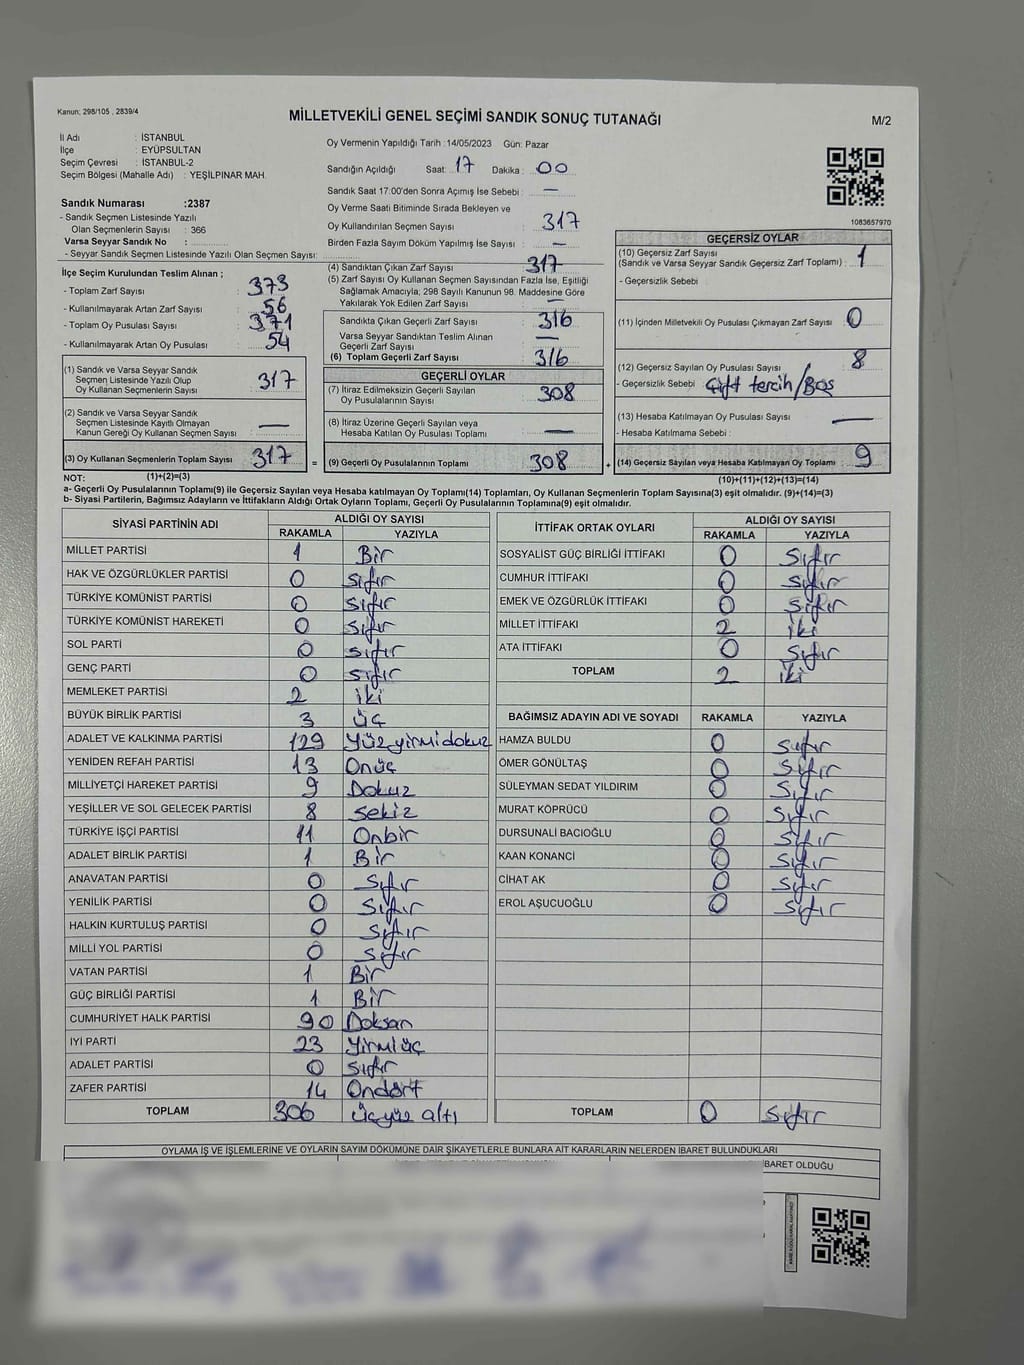 Kanun; 298/105 , 2839/4
MİLLETVEKİLİ GENEL SEÇİMİ SANDIK SONUÇ TUTANAĞI
M/2
İl Adı : İSTANBUL
İlçe : EYÜPSULTAN
Seçim Çevresi : İSTANBUL-2
Seçim Bölgesi (Mahalle Adı) : YEŞİLPINAR MAH.
Oy Vermenin Yapıldığı Tarih :14/05/2023 Gün: Pazar
Sandığın Açıldığı Saat: 17 Dakika : 00
Sandık Saat 17:00'den Sonra Açımış İse Sebebi : —
Oy Verme Saati Bitiminde Sırada Bekleyen ve
Oy Kullandırılan Seçmen Sayısı : 317
Birden Fazla Sayım Döküm Yapılmış İse Sayısı : —
1083657970
Sandık Numarası :2387
- Sandık Seçmen Listesinde Yazılı
Olan Seçmenlerin Sayısı : 366
Varsa Seyyar Sandık No :
- Seyyar Sandık Seçmen Listesinde Yazılı Olan Seçmen Sayısı:
İlçe Seçim Kurulundan Teslim Alınan ;
- Toplam Zarf Sayısı : 373
- Kullanılmayarak Artan Zarf Sayısı : 56
- Toplam Oy Pusulası Sayısı : 371
- Kullanılmayarak Artan Oy Pusulası : 54
(1) Sandık ve Varsa Seyyar Sandık
Seçmen Listesinde Yazılı Olup
Oy Kullanan Seçmenlerin Sayısı : 317
(2) Sandık ve Varsa Seyyar Sandık
Seçmen Listesinde Kayıtlı Olmayan
Kanun Gereği Oy Kullanan Seçmen Sayısı : —
(3) Oy Kullanan Seçmenlerin Toplam Sayısı : 317
(1)+(2)=(3)
(4) Sandıktan Çıkan Zarf Sayısı : 317
(5) Zarf Sayısı Oy Kullanan Seçmen Sayısından Fazla İse, Eşitliği
Sağlamak Amacıyla; 298 Sayılı Kanunun 98. Maddesine Göre
Yakılarak Yok Edilen Zarf Sayısı : —
Sandıkta Çıkan Geçerli Zarf Sayısı : 316
Varsa Seyyar Sandıktan Teslim Alınan
Geçerli Zarf Sayısı : —
(6) Toplam Geçerli Zarf Sayısı : 316
GEÇERLİ OYLAR
(7) İtiraz Edilmeksizin Geçerli Sayılan
Oy Pusulalarının Sayısı : 308
(8) İtiraz Üzerine Geçerli Sayılan veya
Hesaba Katılan Oy Pusulası Toplamı : —
= (9) Geçerli Oy Pusulalarının Toplamı : 308
GEÇERSİZ OYLAR
(10) Geçersiz Zarf Sayısı
(Sandık ve Varsa Seyyar Sandık Geçersiz Zarf Toplamı) : 1
- Geçersizlik Sebebi :
(11) İçinden Milletvekili Oy Pusulası Çıkmayan Zarf Sayısı : 0
(12) Geçersiz Sayılan Oy Pusulası Sayısı : 8
- Geçersizlik Sebebi : Çift tercih/Boş
(13) Hesaba Katılmayan Oy Pusulası Sayısı : —
- Hesaba Katılmama Sebebi :
+ (14) Geçersiz Sayılan veya Hesaba Katılmayan Oy Toplamı : 9
(10)+(11)+(12)+(13)=(14)
NOT:
a- Geçerli Oy Pusulalarının Toplamı(9) ile Geçersiz Sayılan veya Hesaba katılmayan Oy Toplamı(14) Toplamları, Oy Kullanan Seçmenlerin Toplam Sayısına(3) eşit olmalıdır. (9)+(14)=(3)
b- Siyasi Partilerin, Bağımsız Adayların ve İttifakların Aldığı Ortak Oyların Toplamı, Geçerli Oy Pusulalarının Toplamına(9) eşit olmalıdır.
SİYASİ PARTİNİN ADI ALDIĞI OY SAYISI
RAKAMLA YAZIYLA
MİLLET PARTİSİ 1 Bir
HAK VE ÖZGÜRLÜKLER PARTİSİ 0 Sıfır
TÜRKİYE KOMÜNİST PARTİSİ 0 Sıfır
TÜRKİYE KOMÜNİST HAREKETİ 0 Sıfır
SOL PARTİ 0 Sıfır
GENÇ PARTİ 0 Sıfır
MEMLEKET PARTİSİ 2 İki
BÜYÜK BİRLİK PARTİSİ 3 Üç
ADALET VE KALKINMA PARTİSİ 129 Yüzyirmidokuz
YENİDEN REFAH PARTİSİ 13 Onüç
MİLLİYETÇİ HAREKET PARTİSİ 9 Dokuz
YEŞİLLER VE SOL GELECEK PARTİSİ 8 Sekiz
TÜRKİYE İŞÇİ PARTİSİ 11 Onbir
ADALET BİRLİK PARTİSİ 1 Bir
ANAVATAN PARTİSİ 0 Sıfır
YENİLİK PARTİSİ 0 Sıfır
HALKIN KURTULUŞ PARTİSİ 0 Sıfır
MİLLİ YOL PARTİSİ 0 Sıfır
VATAN PARTİSİ 1 Bir
GÜÇ BİRLİĞİ PARTİSİ 1 Bir
CUMHURİYET HALK PARTİSİ 90 Doksan
İYİ PARTİ 23 Yirmiüç
ADALET PARTİSİ 0 Sıfır
ZAFER PARTİSİ 14 Ondört
TOPLAM 306 Üçyüz altı
İTTİFAK ORTAK OYLARI ALDIĞI OY SAYISI
RAKAMLA YAZIYLA
SOSYALİST GÜÇ BİRLİĞİ İTTİFAKI 0 Sıfır
CUMHUR İTTİFAKI 0 Sıfır
EMEK VE ÖZGÜRLÜK İTTİFAKI 0 Sıfır
MİLLET İTTİFAKI 2 İki
ATA İTTİFAKI 0 Sıfır
TOPLAM 2 İki
BAĞIMSIZ ADAYIN ADI VE SOYADI RAKAMLA YAZIYLA
HAMZA BULDU 0 Sıfır
ÖMER GÖNÜLTAŞ 0 Sıfır
SÜLEYMAN SEDAT YILDIRIM 0 Sıfır
MURAT KÖPRÜCÜ 0 Sıfır
DURSUNALİ BACIOĞLU 0 Sıfır
KAAN KONANCİ 0 Sıfır
CİHAT AK 0 Sıfır
EROL AŞUCUOĞLU 0 Sıfır
TOPLAM 0 Sıfır
OYLAMA İŞ VE İŞLEMLERİNE VE OYLARIN SAYIM DÖKÜMÜNE DAİR ŞİKAYETLERLE BUNLARA AİT KARARLARIN NELERDEN İBARET BULUNDUKLARI
İBARET OLDUĞU